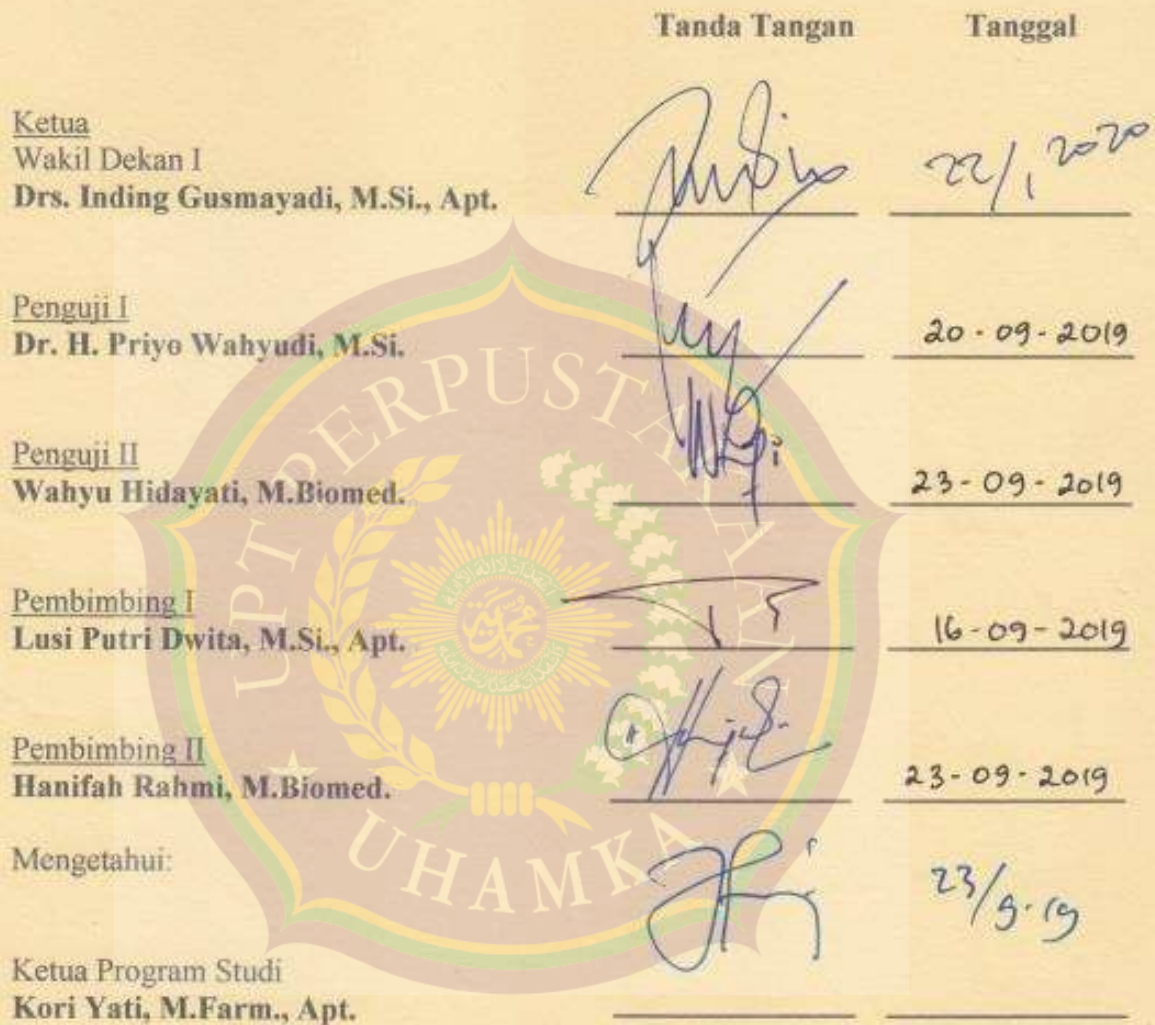 Tanda Tangan Tanggal
Ketua
Wakil Dekan I
Drs. Inding Gusmayadi, M.Si., Apt. 22/1 2020
Penguji I
Dr. H. Priyo Wahyudi, M.Si. 20-09-2019
Penguji II
Wahyu Hidayati, M.Biomed. 23-09-2019
Pembimbing I
Lusi Putri Dwita, M.Si., Apt. 16-09-2019
Pembimbing II
Hanifah Rahmi, M.Biomed. 23-09-2019
Mengetahui:
23/9-19
Ketua Program Studi
Kori Yati, M.Farm., Apt.
UPT PERPUSTAKAAN
UHAMKA